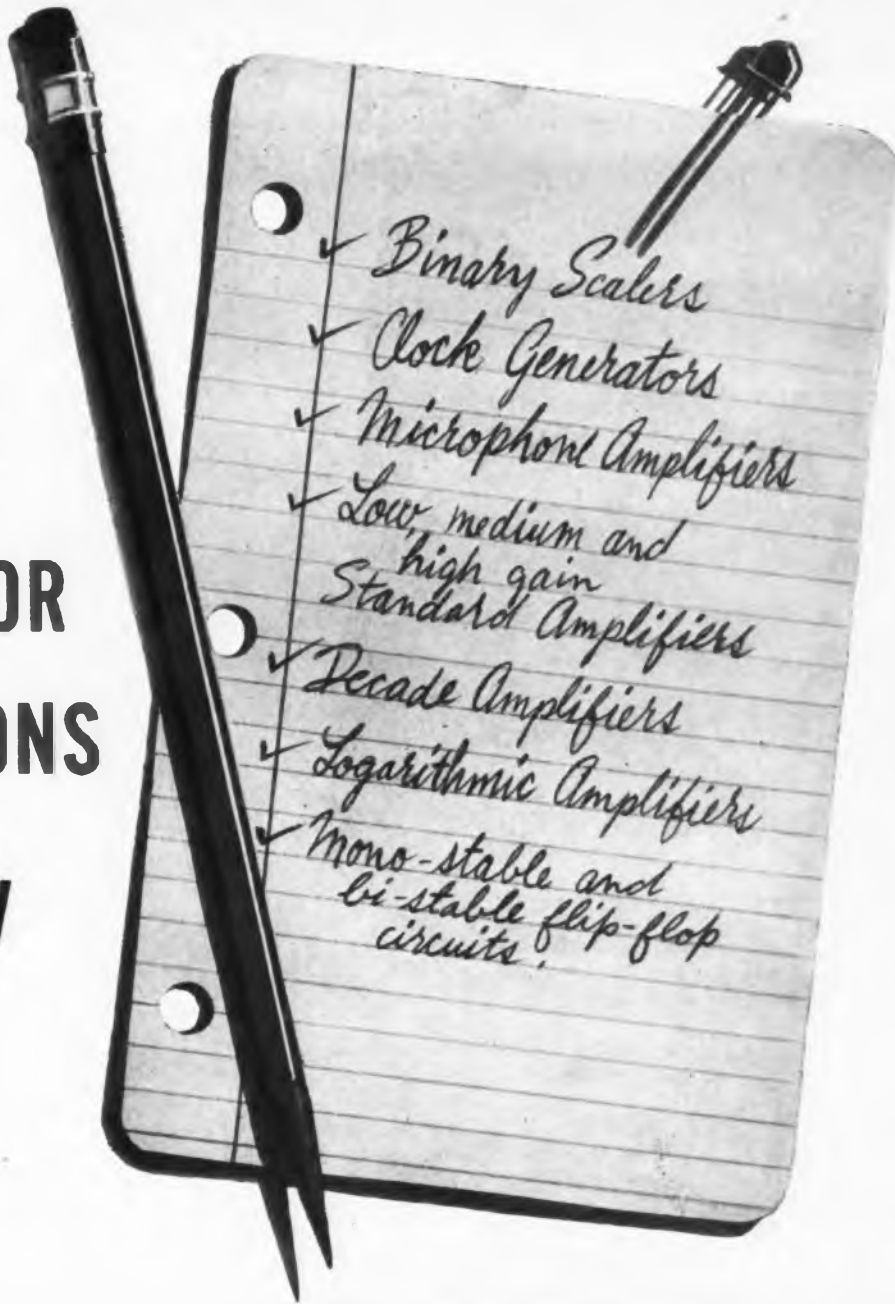 OR
ONS
Binary Scalers
Clock Generators
Microphone Amplifiers
Low, medium and
high gain
Standard Amplifiers
Decade Amplifiers
Logarithmic Amplifiers
Mono-stable and
bi-stable flip-flop
circuits.